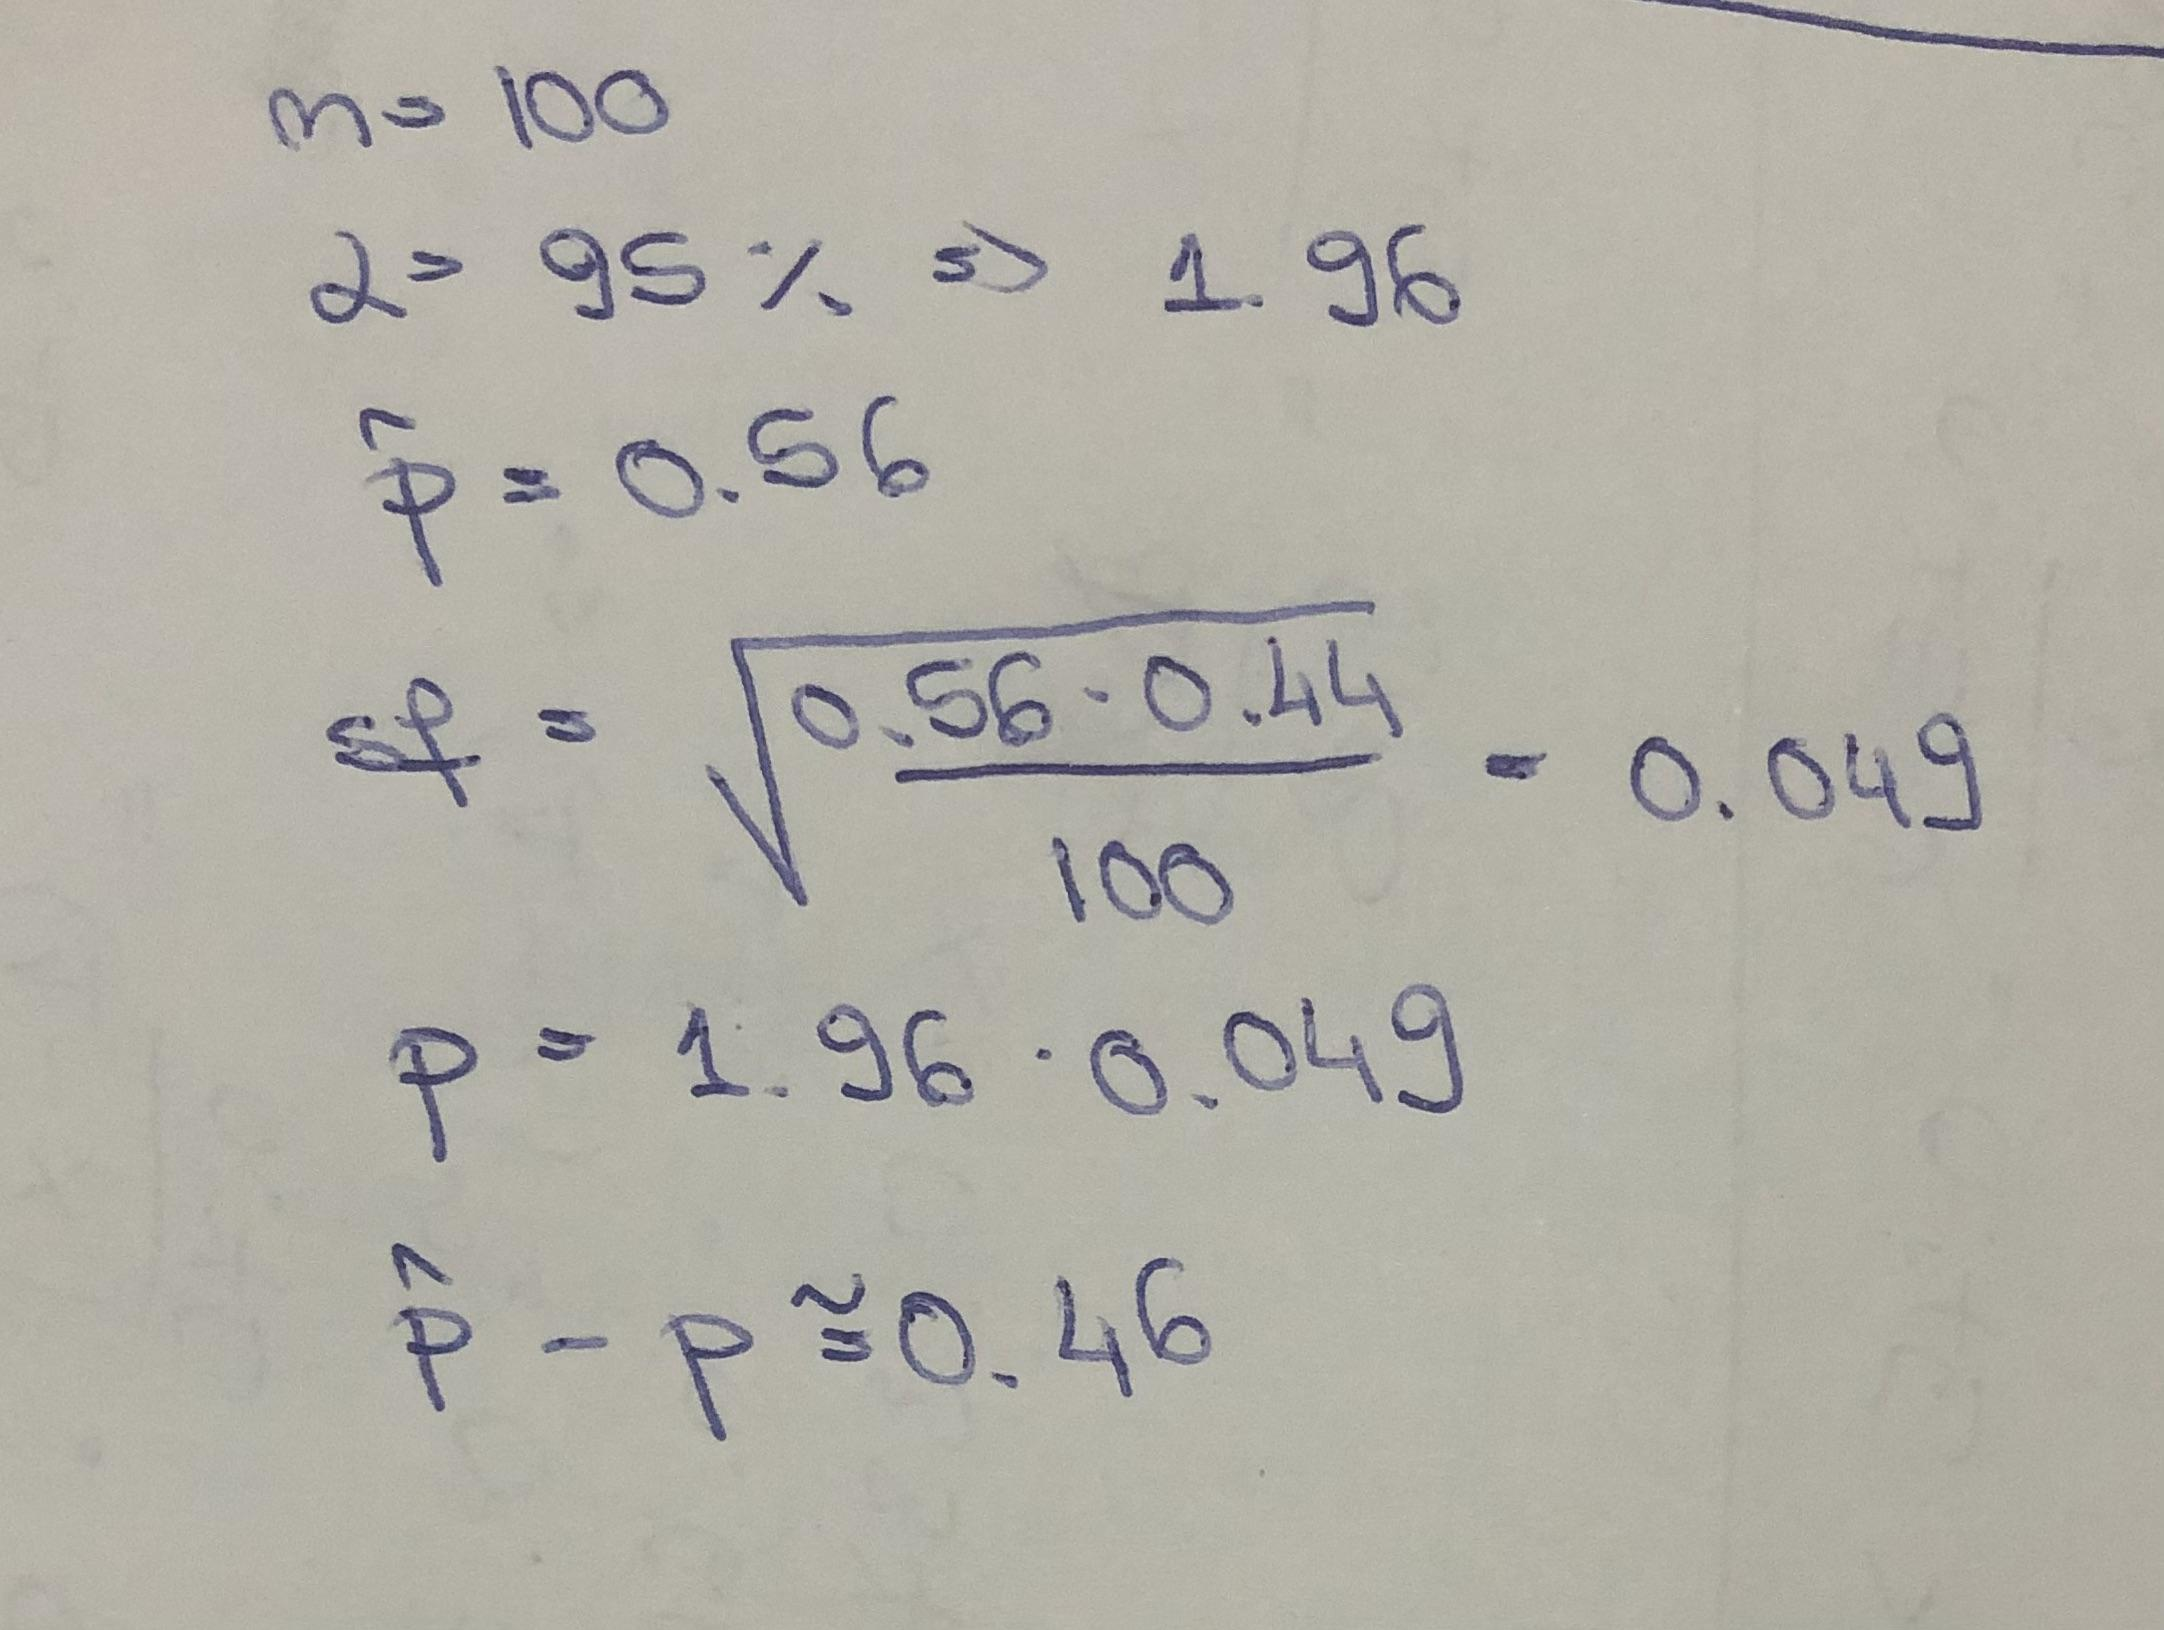 n = 100
α = 95 % => 1.96
p̂ = 0.56
sp = √(0.56 · 0.44 / 100) = 0.049
p = 1.96 · 0.049
p̂ - p ≅ 0.46